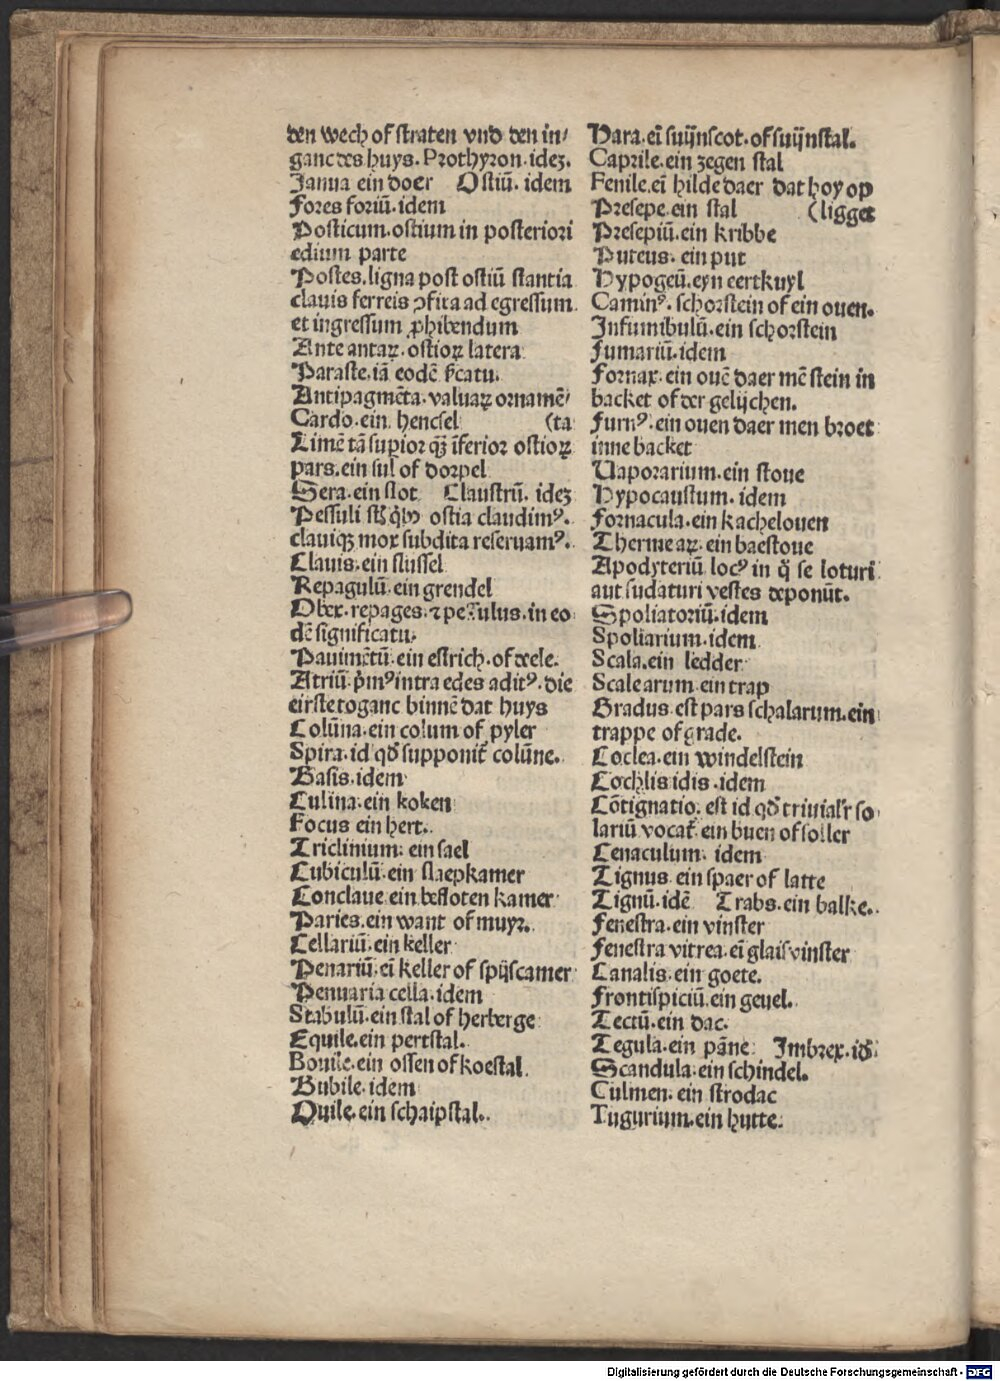 den wech of straten vnd den in⸗
ganc des huys. Prothyron. ideꝫ.
Janua ein doer Ostiū. idem
Fores foriū. idem
Posticum. ostium in posteriori
edium parte
Postes. ligna post ostiū stantia
clauis ferreis ꝯfita ad egressum
et ingressum ꝓhibendum
Ante antaꝝ. ostioꝝ latera
Paraste. iā eodē
Antipagmēta. valuaꝝ ornamē⸗
Cardo. ein hencsel (ta
Limē tā supior qꝫ īferior ostioꝝ
pars. ein sul of dorpel
Sera. ein slot Claustrū. ideꝫ
Pessuli ostia claudimꝰ.
clauiqꝫ mox subdita reseruamꝰ.
Clauis. ein slussel
Repagulū. ein grendel
Obex. repages. ⁊ pessulus. in eo
dē significatu.
Pauimētū. ein estrich. of dele.
Atriū. pͥmꝰ intra edes aditꝰ. die
eirste toganc binnē dat huys
Colūna. ein colum of pyler
Spira. id qd̄ supponit᷑ colūne.
Basis. idem
Culina. ein koken
Focus ein hert.
Triclinium. ein sael
Cubiculū. ein slaepkamer
Conclaue ein besloten kamer
Paries. ein want of muyr.
Cellariū. ein keller
Penariū. eī keller of spijscamer
Penuaria cella. idem
Stabulū. ein stal of herberge
Equile. ein pertstal.
Bouile. ein ossen of koestal.
Bubile. idem
Ouile. ein schaipstal.
Hara. eī suijnscot. of suijnstal.
Caprile. ein zegen stal
Fenile. eī hilde daer dat hoy op
Presepe. ein stal (ligget
Presepiū. ein kribbe
Puteus. ein put
Hypogeū. eyn eertkuyl
Caminꝰ. schorstein of ein ouen.
Infumibulū. ein schorstein
Fumariū. idem
Fornax. ein ouē daer mē stein in
backet of der gelijchen.
Furnꝰ. ein ouen daer men broet
inne backet
Uaporarium. ein stoue
Hypocaustum. idem
Fornacula. ein kachelouen
Therme aꝝ. ein baestoue
Apodyteriū locꝰ in q̄ se loturi
aut sudaturi vestes deponūt.
Spoliatoriū. idem
Spoliarium. idem
Scala. ein ledder
Scale arum ein trap
Gradus est pars schalarum. ein
trappe of grade.
Coclea. ein windelstein
Cochlis idis. idem
Cōtignatio. est id qd̄ triuialr̄ so
lariū vocat᷑ ein buen of soller
Cenaculum. idem
Tignus ein spaer of latte
Tignū. idē Trabs. ein balke.
Fenestra. ein vinster
Fenestra vitrea. eī glaisvinster
Canalis. ein goete.
Frontispiciū. ein geuel.
Tectū. ein dac.
Tegula. ein pāne Imbrex. id̄.
Scandula. ein schindel.
Culmen. ein strodac
Tugurium. ein hutte.
Digitalisierung gefördert durch die Deutsche Forschungsgemeinschaft - DFG